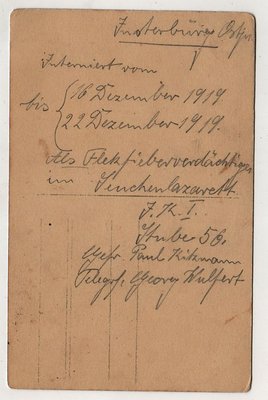 Insterburg Ostpr.
Interniert vom
bis
16 Dezember 1919
22 Dezember 1919.
Als Flekfieberverdächtiger
im Seuchenlazarett
J. K. I.
Stube 56.
Gefr. Paul Kitzmann
Telegrf. Georg Wulfert